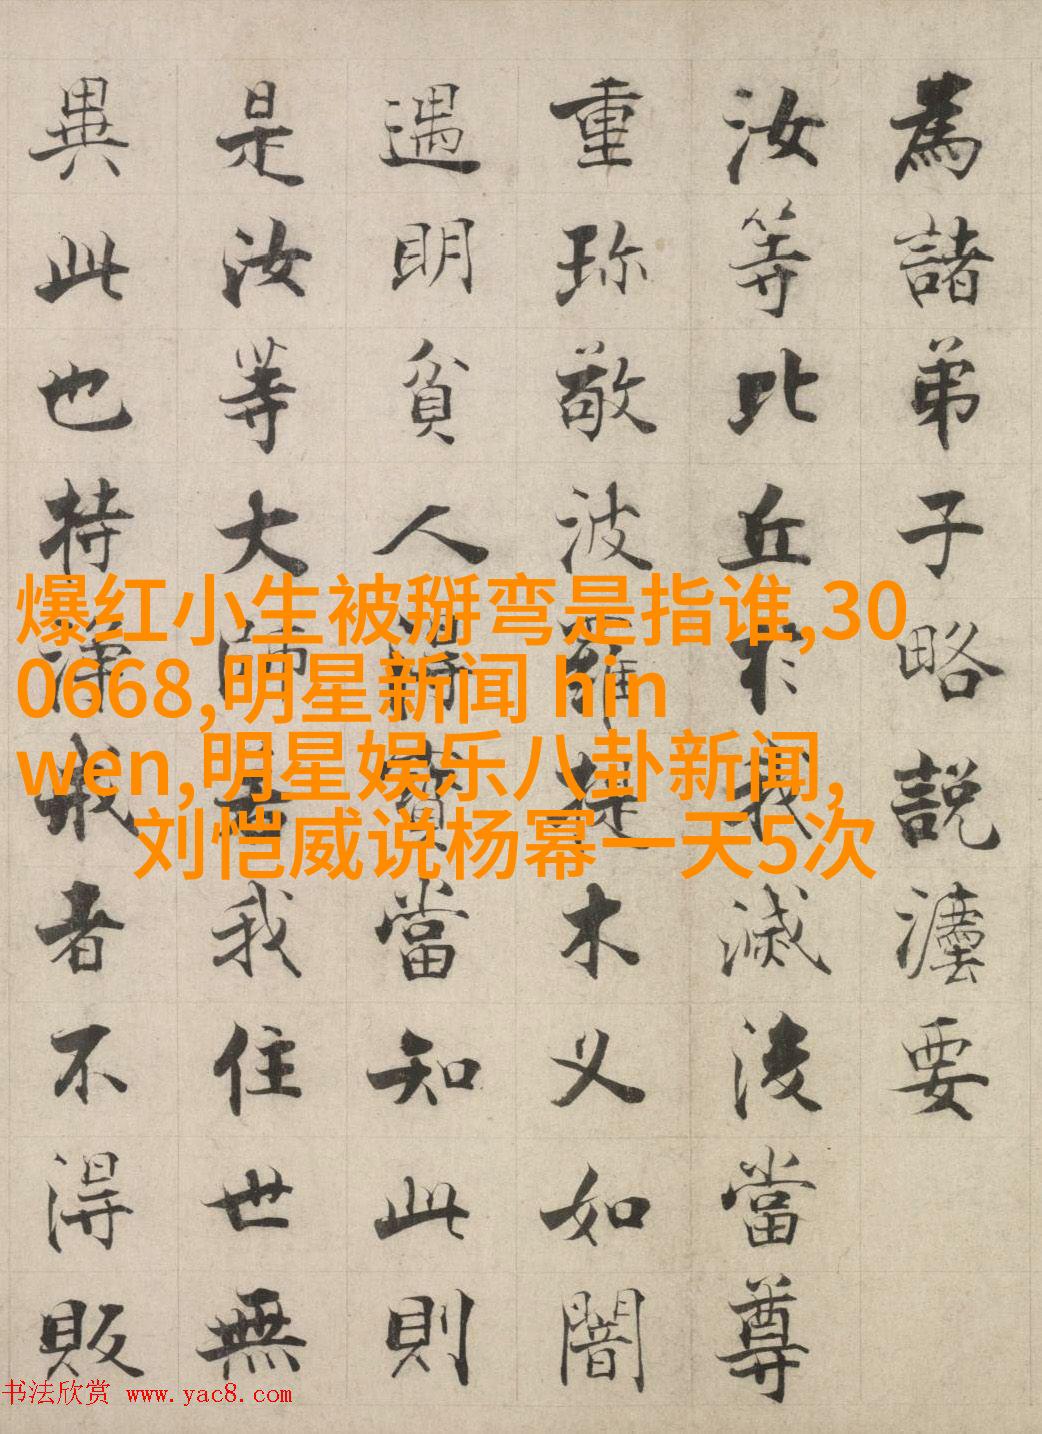 為諸弟子略說法要
汝等比丘於我滅後當尊
重珎敬波羅提木叉如闇
遇明貧人得寶當知此則
是汝等大師若我住世無
異此也持淨戒者不得販
爆红小生被掰弯是指谁,30
0668,明星新闻 hin
wen,明星娱乐八卦新闻,
刘恺威说杨幂一天5次
书法欣赏 www.yac8.com